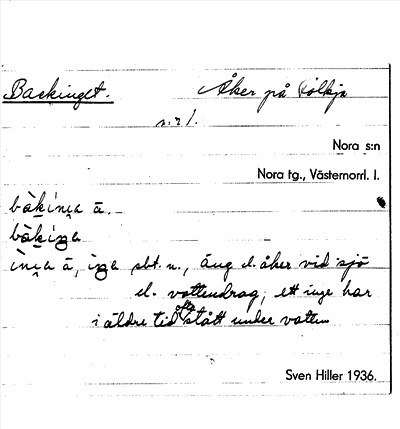 Backinget. Åker på Folkja
s. 21.
Nora s:n
Nora tg., Västernorrl. l.
bàkínɛa ā.
bàkiŋa
ìnɛa ā, iŋa sbt. n., äng el. åker vid sjö
el. vattendrag, ett inge har
i äldre tid ofta stått under vatten
Sven Hiller 1936.